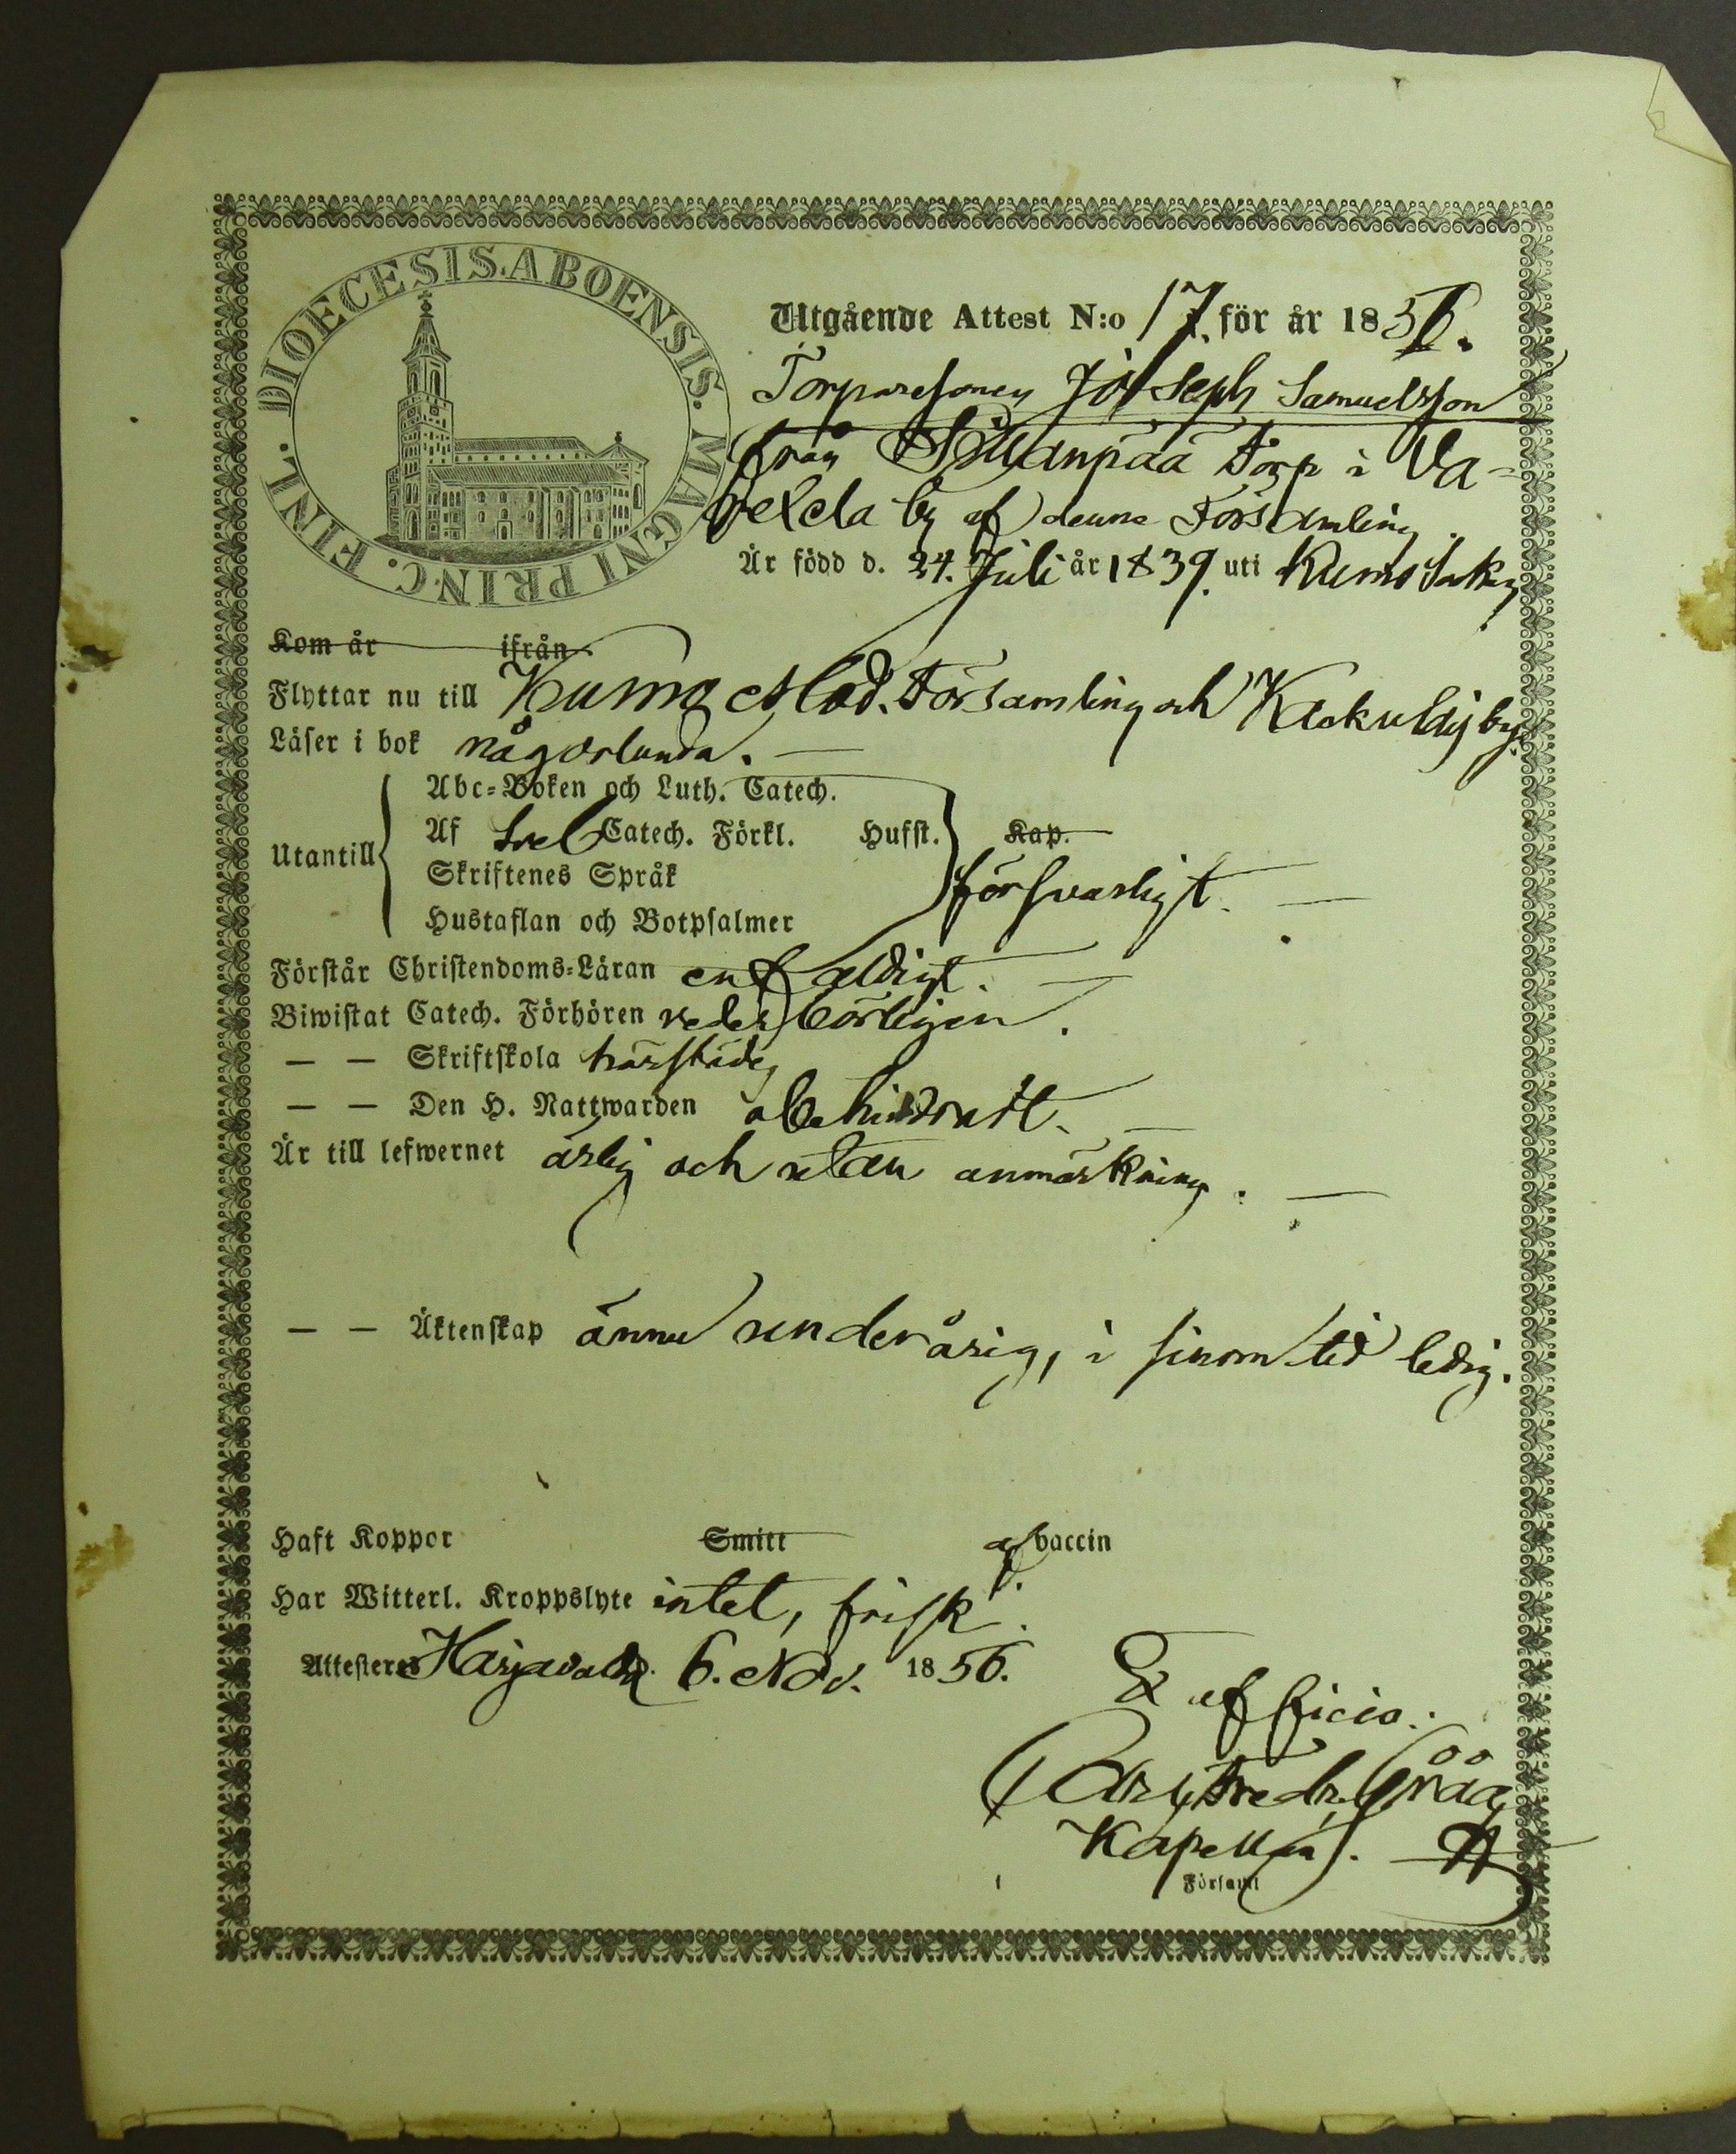 DIOECESIS. ABOENSIS. MAGNI PRINC. FINL.
Utgående Attest N:o 17. för år 1856.
Torparesonen Joseph Samuelsson
från Torp i Va-
by af denna Församling.
Är född d. 24. Juli år 1839. uti Kumo
Kom år ifrån
Flyttar nu till Kumo Mod. Församling och by.
Läser i bok någorlunda.
Utantill
Abc-Boken och Luth. Catech.
Af Catech. Förkl. Hufst. Kap.
Skriftenes Språk
försvarligt.
Hustaflan och Botpsalmer
Förstår Christendoms-Läran enfaldigt.
Biwistat Catech. Förhören vederbörligen.
— — Skriftskola härstädes
— — Den H. Nattwarden obehindradt.
Är till lefwernet ärlig och utan anmärkning.
— — Äktenskap ännu underårig, i sinom tid ledig.
Haft Koppor Smitt af vaccin
Har Witterl. Kroppslyte intet, frisk.
Attesteras Harjavalta d. 6. Nov. 1856.
Ex officio.
Carl Fredr.
Kapellan.
Församl